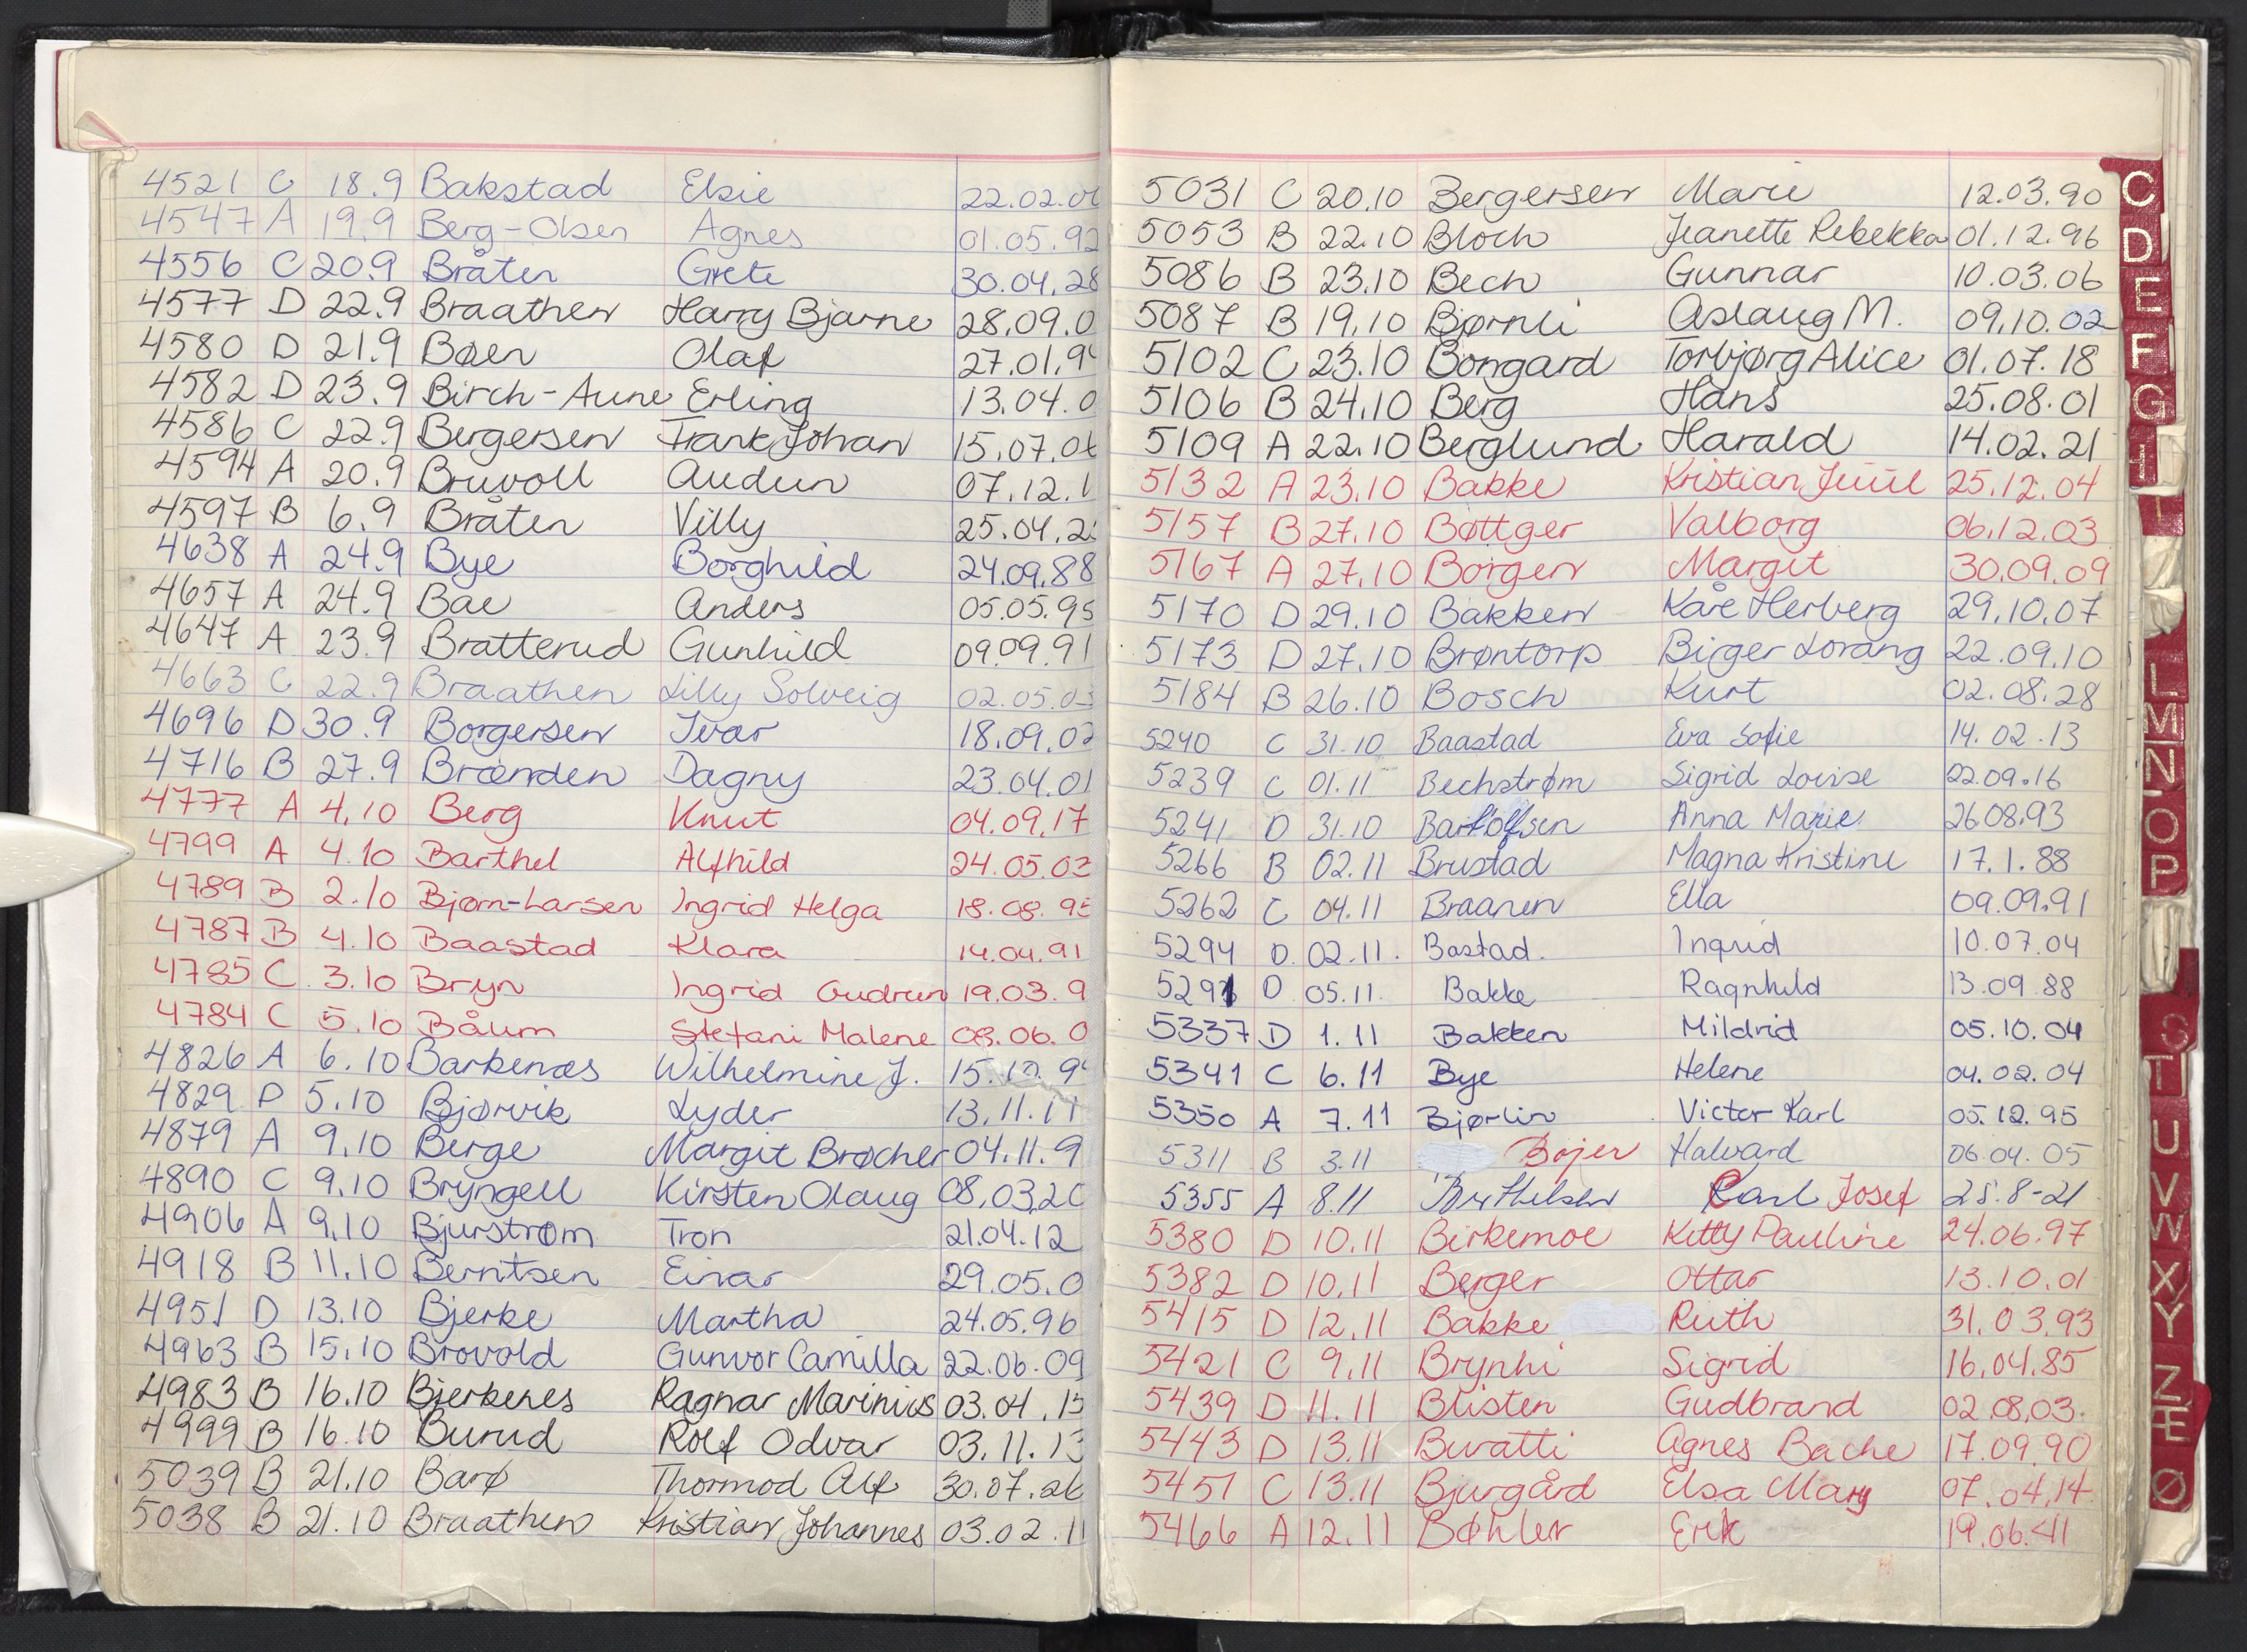 4521 C 18.9 Bakstad Elsie 22.02.0
4547 A 19.9 Berg-Olsen Agnes 01.05.92
4556 C 20.9 Bråten Grete 30.04.28
4577 D 22.9 Braathen Harry Bjarne 28.09.0
4580 D 21.9 Bøen Olaf 27.01.9
4582 D 23.9 Birch-Aune Erling 13.04.0
4586 C 22.9 Bergersen Frank Johan 15.07.0
4594 A 20.9 Bruvoll Audun 07.12.1
4597 B 6.9 Bråten Villy 25.04.2
4638 A 24.9 Bye Borghild 24.09.88
4657 A 24.9 Bae Anders 05.05.95
4647 A 23.9 Bratterud Gunhild 09.09.91
4663 C 22.9 Braathen Lilly Solveig 02.05.03
4696 D 30.9 Borgersen Ivar 18.09.02
4716 B 27.9 Brænden Dagny 23.04.01
4777 A 4.10 Berg Knut 04.09.17
4799 A 4.10 Barthel Alfhild 24.05.03
4789 B 2.10 Bjørn-Larsen Ingrid Helga 18.08.95
4787 B 4.10 Baastad Klara 14.04.91
4785 C 3.10 Bryn Ingrid Gudrun 19.03.9
4784 C 5.10 Båum Stefani Malene 08.06.0
4826 A 6.10 Barkenæs Wilhelmine J. 15.12.9
4829 D 5.10 Bjørvik Lyder 13.11.11
4879 A 9.10 Berge Margit Brøcher 04.11.9
4890 C 9.10 Bryngell Kirsten Olaug 08.03.20
4906 A 9.10 Bjurstrøm Tron 21.04.12
4918 B 11.10 Berntsen Einar 29.05.0
4951 D 13.10 Bjerke Martha 24.05.96
4963 B 15.10 Brovold Gunvor Camilla 22.06.09
4983 B 16.10 Bjerkenes Ragnar Marinius 03.04.15
4999 B 16.10 Burud Rolf Odvar 03.11.13
5039 B 21.10 Barø Thormod Alf 30.07.26
5038 B 21.10 Braathen Kristian Johannes 03.02.11
5031 C 20.10 Bergersen Marie 12.03.90
5053 B 22.10 Bloch Jeanette Rebekka 01.12.96
5086 B 23.10 Bech Gunnar 10.03.06
5087 B 19.10 Bjørnli Aslaug M. 09.10.02
5102 C 23.10 Bongard Torbjørg Alice 01.07.18
5106 B 24.10 Berg Hans 25.08.01
5109 A 22.10 Berglund Harald 14.02.21
5132 A 23.10 Bakke Kristian Juul 25.12.04
5157 B 27.10 Bøttger Valborg 06.12.03
5167 A 27.10 Borgen Margit 30.09.09
5170 D 29.10 Bakken Kåre Herberg 29.10.07
5173 D 27.10 Brøntorp Birger Lorang 22.09.10
5184 B 26.10 Bosch Kurt 02.08.28
5240 C 31.10 Baastad Eva Sofie 14.02.13
5239 C 01.11 Bechstrøm Sigrid Lovise 22.09.16
5241 D 31.10 Bartolfsen Anna Marie 26.08.93
5266 B 02.11 Brustad Magna Kristine 17.1.88
5262 C 04.11 Braanen Ella 09.09.91
5294 D. 02.11. Bastad. Ingrid 10.07.04
5291 D 05.11. Bakke Ragnhild 13.09.88
5337 D 1.11 Bakken Mildrid 05.10.04
5341 C 6.11 Bye Helene 04.02.04
5350 A 7.11 Bjørlin Victor Karl 05.12.95
5311 B 3.11 Bojer Halvard 06.04.05
5355 A 8.11 Berthelsen Carl Josef 25.8-21
5380 D 10.11 Birkemoe Kitty Pauline 24.06.97
5382 D 10.11 Berger Ottar 13.10.01
5415 D 12.11 Bakke Ruth 31.03.93
5421 C 9.11 Brynhi Sigrid 16.04.85
5439 D 11.11 Blisten Gudbrand 02.08.03.
5443 D 13.11 Buratti Agnes Bache 17.09.90
5451 C 13.11 Bjurgård Elsa Mary 07.04.14
5466 A 12.11 Bøhler Erik 19.06.41
C
D
E
F
G
I
L
M
N
O
P
S
T
U
V
W
X
Y
Z
Æ
Ø